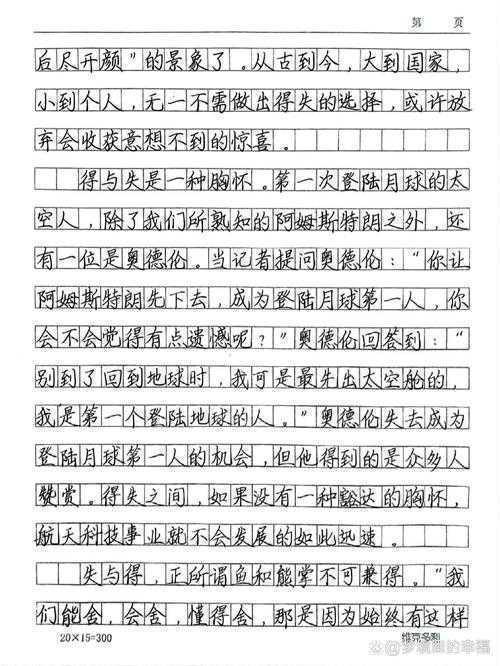 第 页
后尽开颜”的景象了。从古到今,大到国家,
小到个人,无一不需做出得失的选择,或许放
弃会收获意想不到的惊喜。
得与失是一种胸怀。第一次登陆月球的太
空人,除了我们所熟知的阿姆斯特朗之外,还
有一位是奥德伦。当记者提问奥德伦:“你让
阿姆斯特朗先下去,成为登陆月球第一人,你
会不会觉得有点遗憾呢?”奥德伦回答到:“
别到了回到地球时,我可是最先出太空舱的,
我是第一个登陆地球的人。”奥德伦失去成为
登陆月球第一人的机会,但他得到的是众多人
赞赏。得失之间,如果没有一种豁达的胸怀,
航天科技事业就不会发展的如此迅速。
失与得,正所谓鱼和熊掌不可兼得。“我
们能舍,会舍,懂得舍,那是因为始终有这样
20×15=300